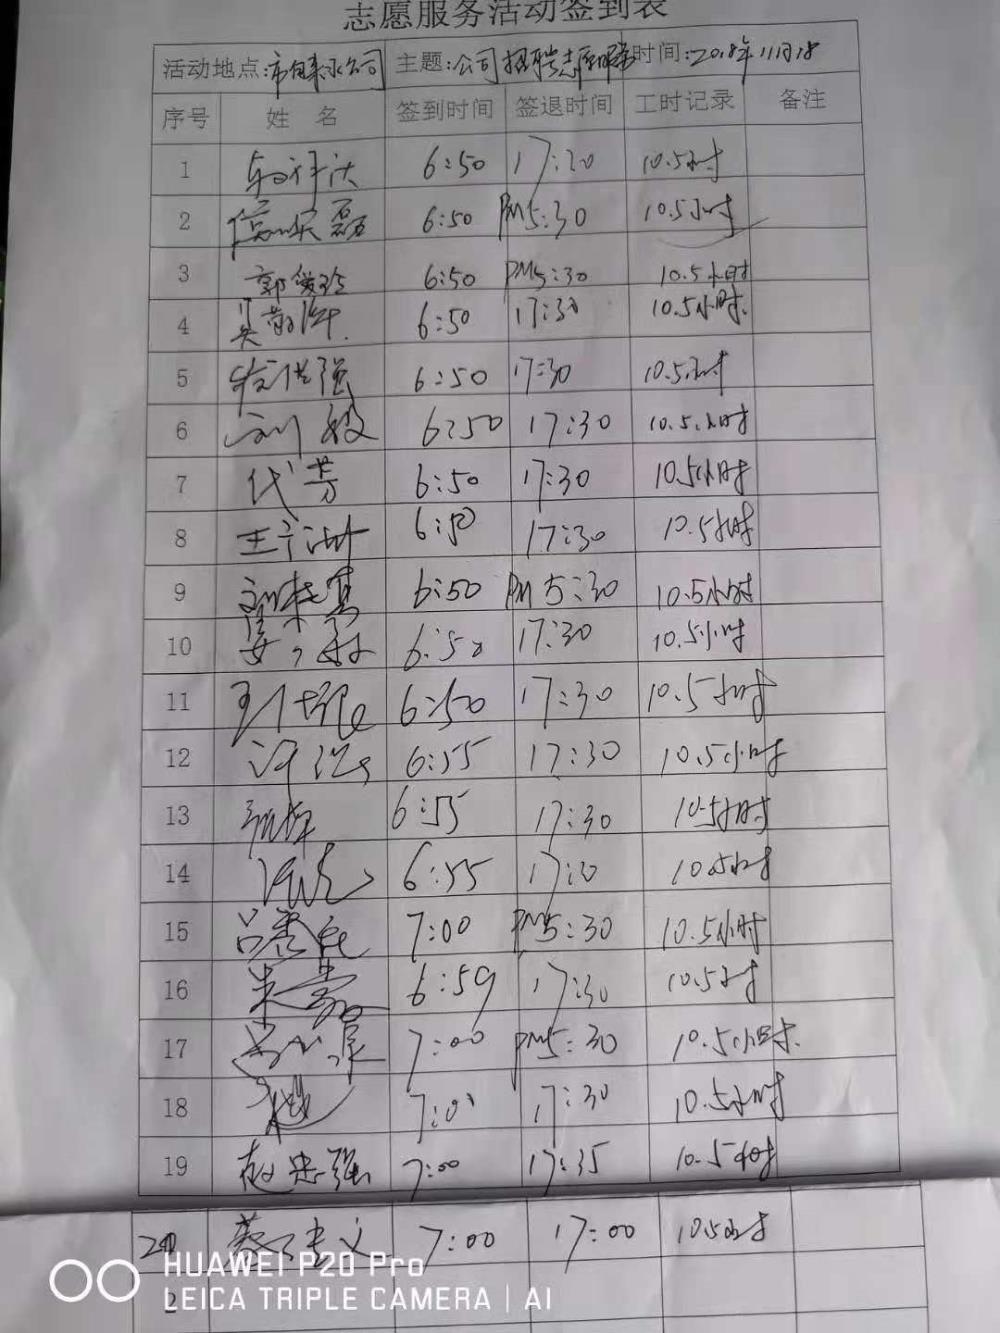 志愿服务活动签到表
活动地点:市自来水公司 主题:公司招聘志愿服务 时间:2018年11月18
序号 姓 名 签到时间 签退时间 工时记录 备注
1 6:50 17:30 10.5小时
2 6:50 PM5:30 10.5小时
3 郭俊玲 6:50 PM5:30 10.5小时
4 6:50 17:30 10.5小时.
5 6:50 17:30 10.5小时
6 刘毅 6:50 17:30 10.5小时
7 代芳 6:50 17:30 10.5小时
8 王宁洲 6:50 17:30 10.5小时
9 6:50 PM 5:30 10.5小时
10 6:50 17:30 10.5小时
11 6:50 17:30 10.5小时
12 6:55 17:30 10.5小时
13 6:55 17:30 10.5小时
14 6:55 17:30 10.5小时
15 7:00 PM5:30 10.5小时
16 6:59 17:30 10.5小时
17 7:00 PM5:30 10.5小时.
18 17:30 10.5小时
19 赵忠强 7:00 17:35 10.5小时
20 7:00 17:00 10.5小时
2
HUAWEI P20 Pro
LEICA TRIPLE CAMERA | AI